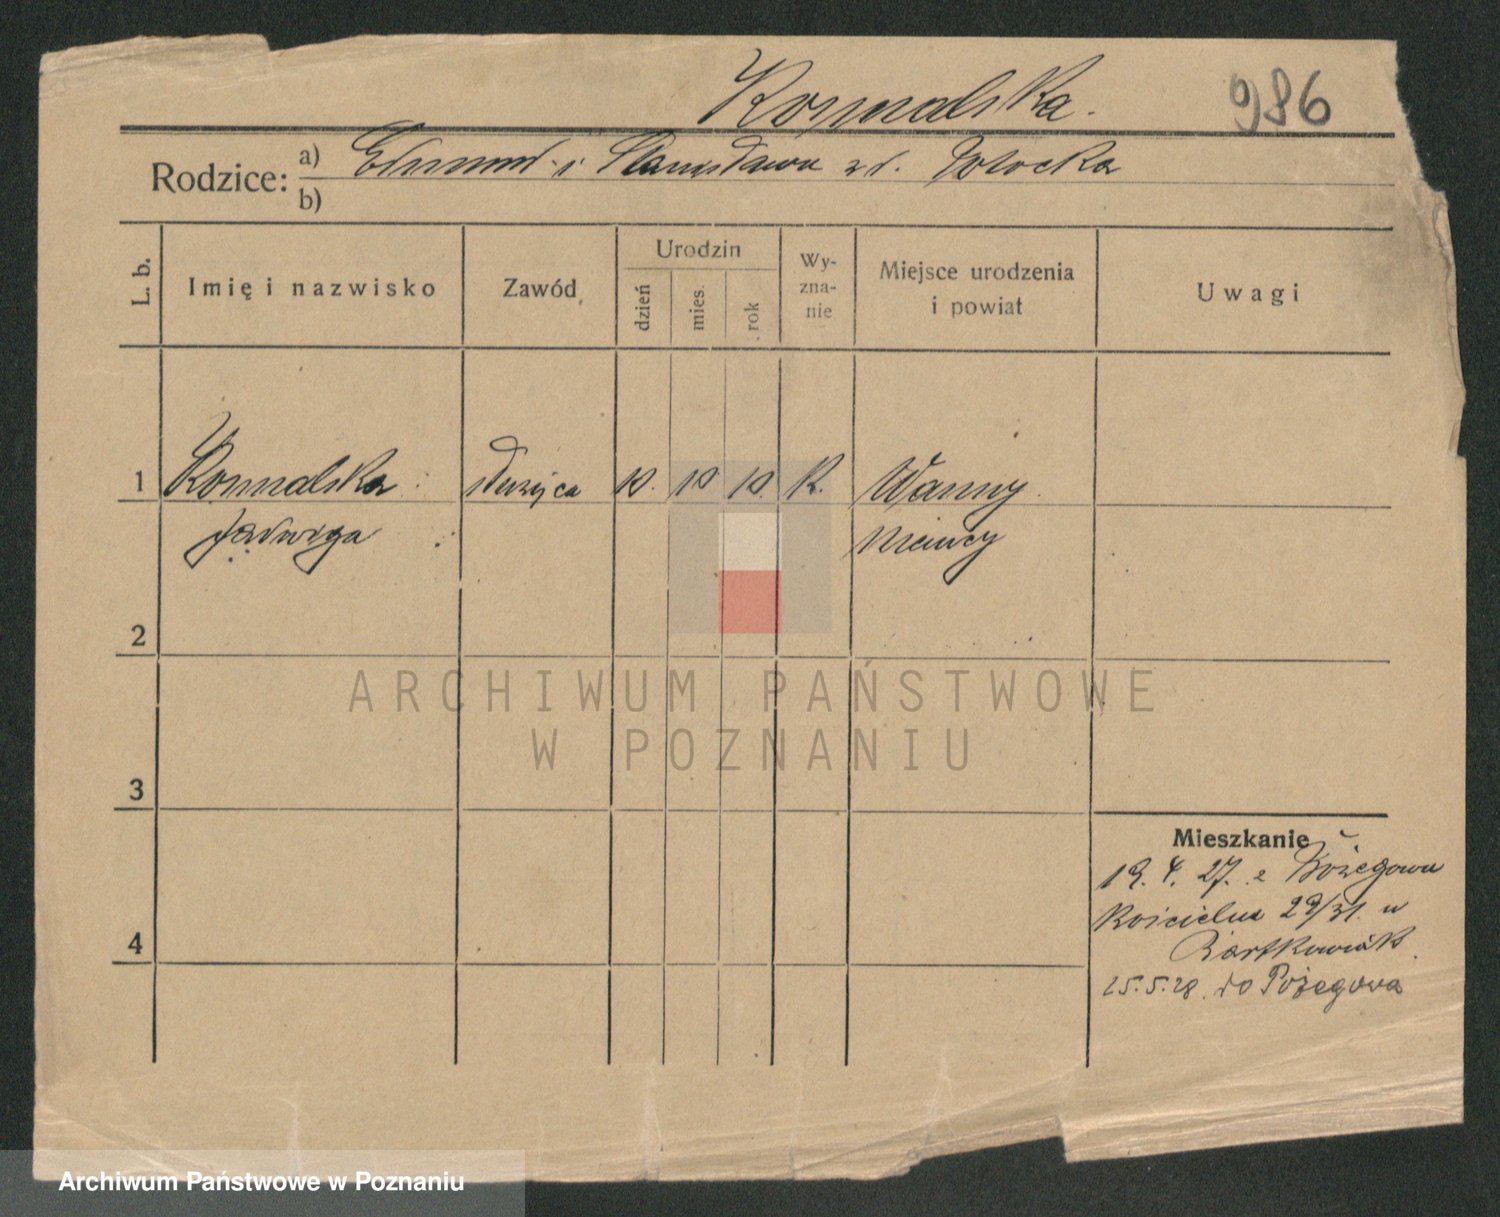 Kosmalska.
986
Rodzice: a) Edmund i Stanisława zd. Potocka
b)
L. b.
Imię i nazwisko
Zawód
Urodzin
dzień
mies.
rok
Wy-
zna-
nie
Miejsce urodzenia
i powiat
Uwagi
1
Kosmalska
służąca
10. 10 10. k.
Wanny
Jadwiga
Niemcy
2
ARCHIWUM PAŃSTWOWE
W POZNANIU
3
Mieszkanie
19. 4. 27. z Pożegowa
Kościelna 29/31. u
Bartkowiak
4
25.5.28. do Pożegowa
Archiwum Państwowe w Poznaniu